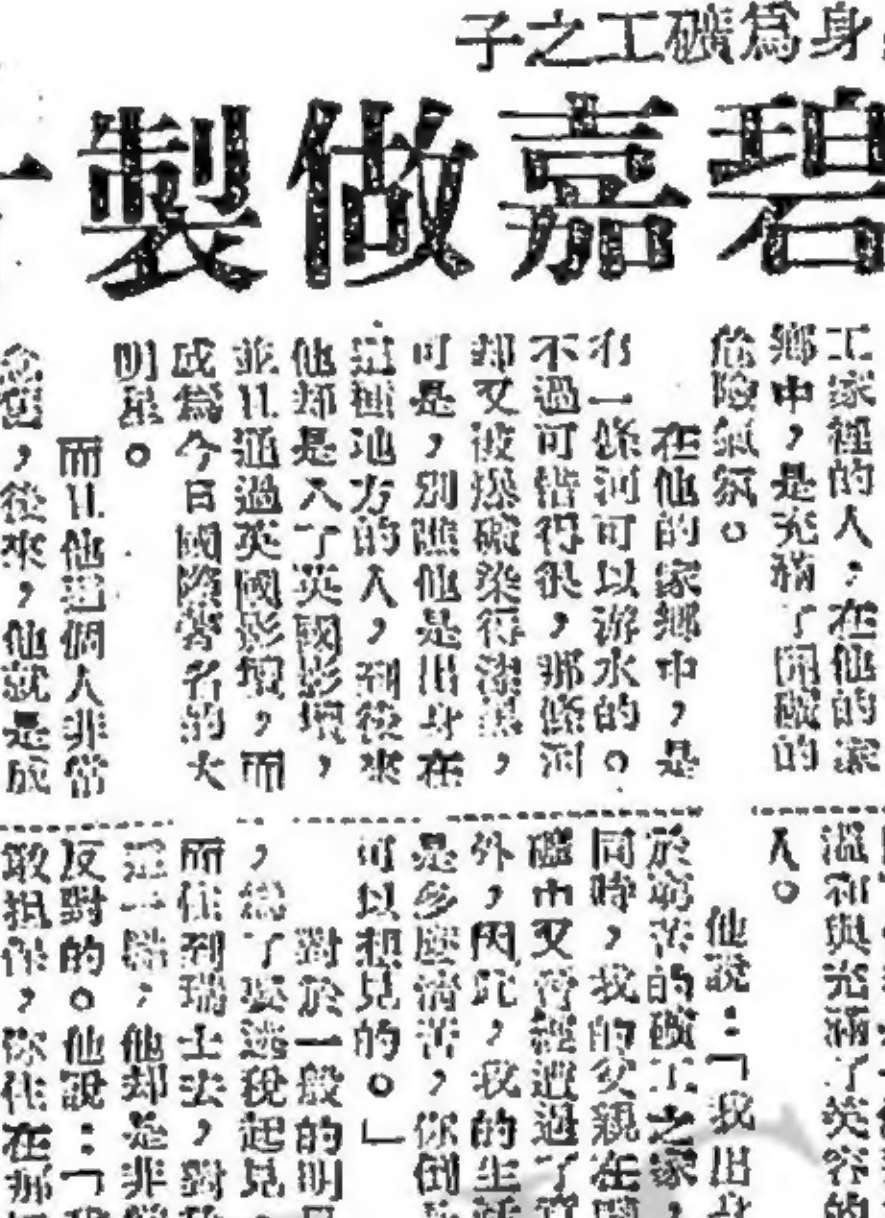 身爲礦工之子
碧嘉做製
工家裡的人,在他的家
鄉中,是充滿了開礦的
危險氣氛。
在他的家鄉中,是
有一條河可以游水的。
不過可惜得很,那條河
却又被爆礦染得漆黑,
可是,別瞧他是出身在
這種地方的人,到後來
他却是入了英國影壇,
並且通過英國影壇,而
成爲今日國際著名的大
明星。
而且他這個人非常
念舊,後來,他就是成
溫和與充滿了笑容的
人。
他說:「我出身
於窮苦的礦工之家,
同時,我的父親在
礦中又曾經遭過了
外,因此,我的生活
是多麼清苦,你倒
可以想見的。」
對於一般的明星
,爲了要逃稅起見,
而住到瑞士去,對
這一點,他却是非常
反對的。他說:「我
敢担保,你住在那